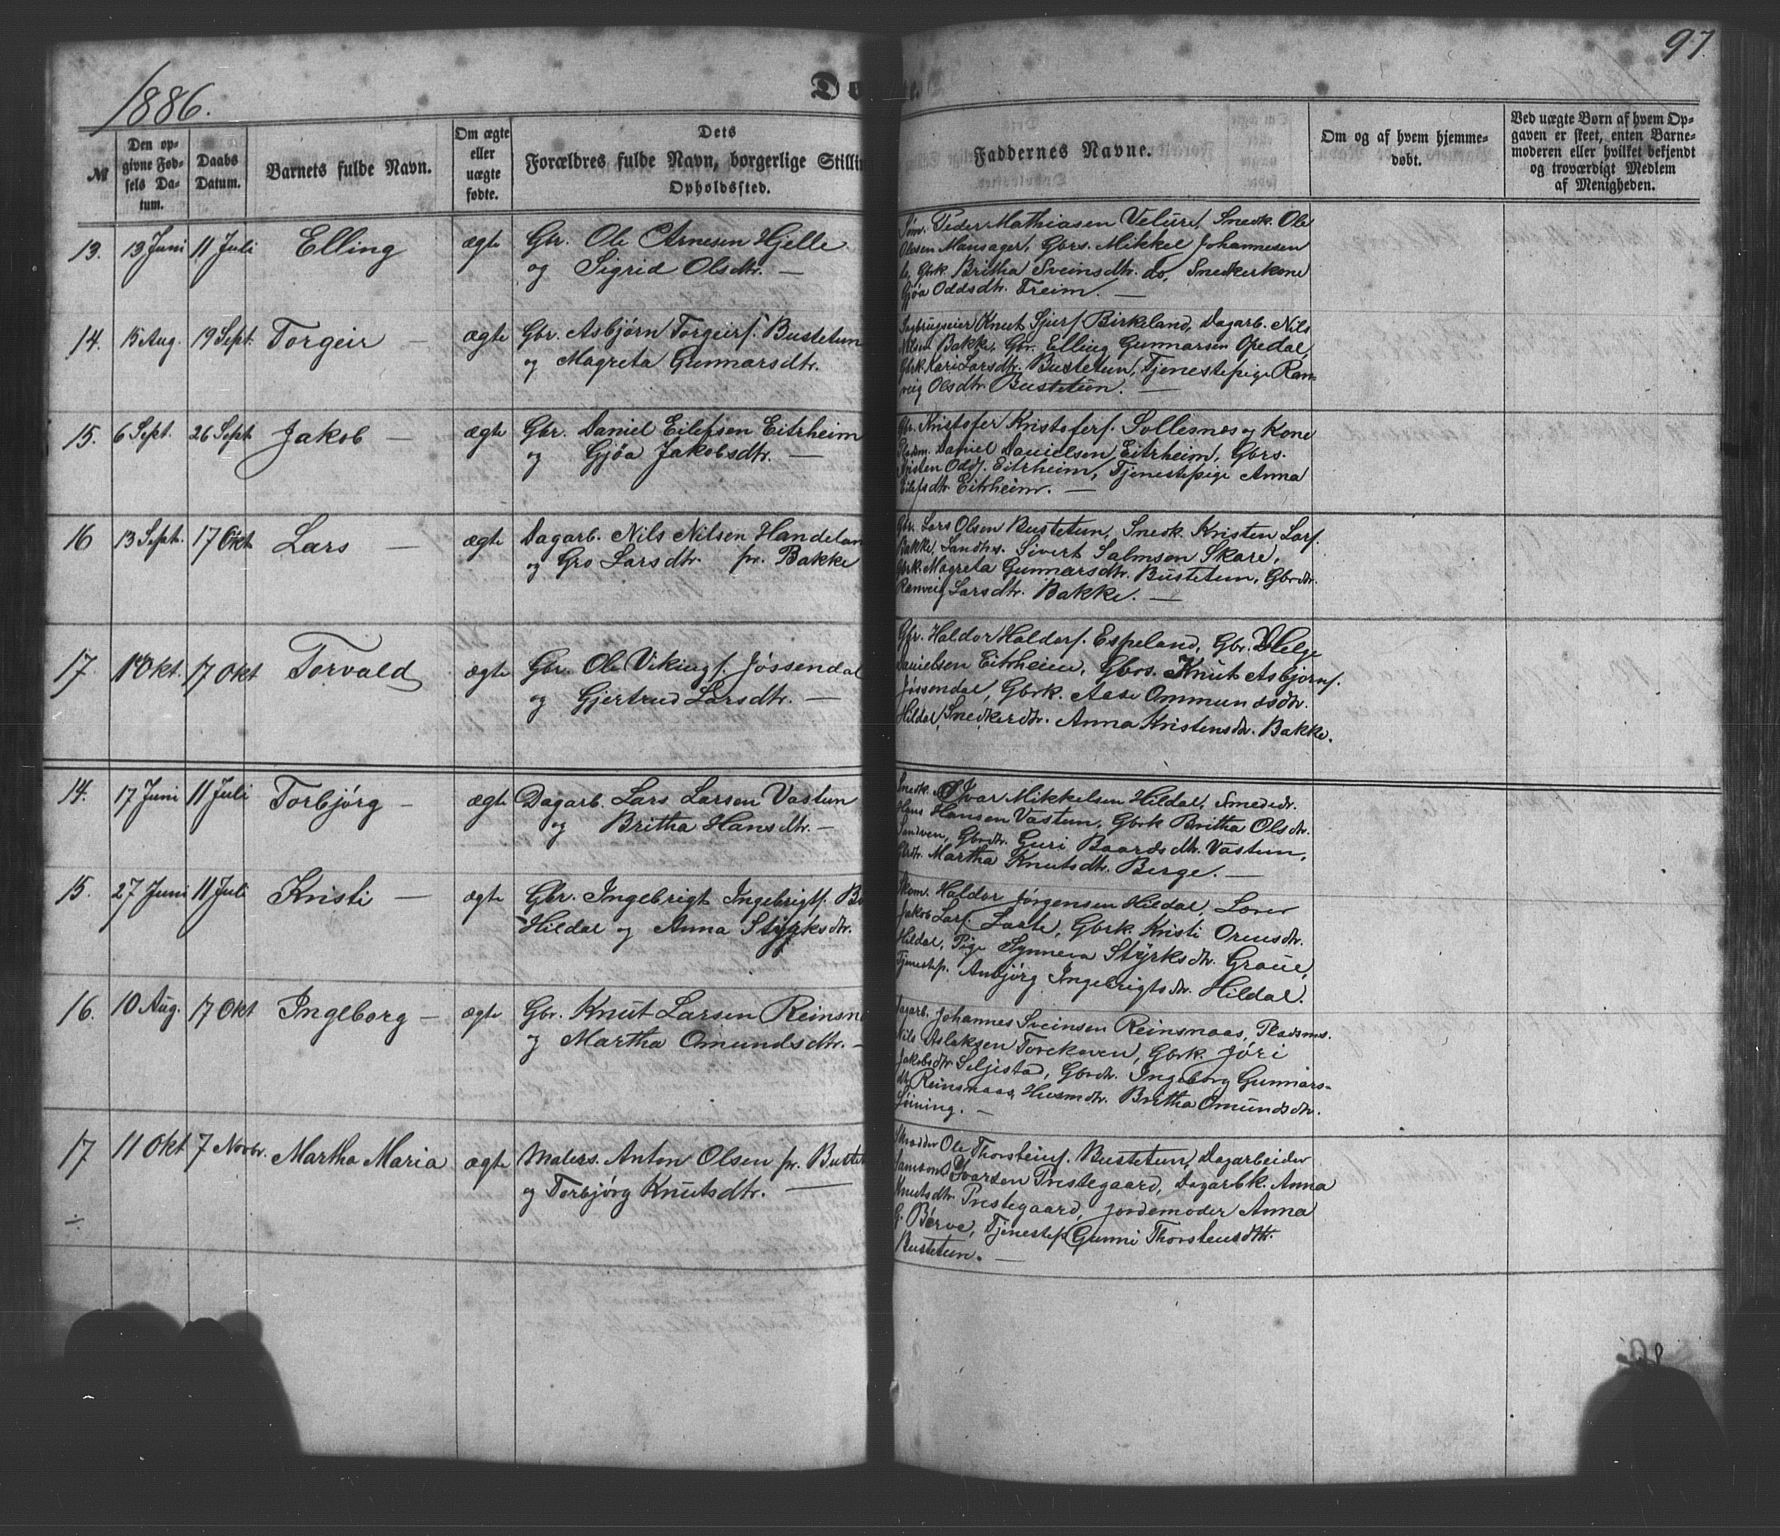 1886.
97.
№
Den op-
givne Fød-
sels Da-
tum.
Daabs
Datum.
Barnets fulde Navn.
Om ægte
eller
uægte
fødte.
Dets
Forældres fulde Navn, borgerlige Stilli
Opholdssted.
Faddernes Navne.
Om og af hvem hjemme-
døbt.
Ved uægte Børn af hvem Op-
gaven er skeet, enten Barne-
moderen eller hvilket bekjendt
og troværdigt Medlem
af Menigheden.
13. 13 Juni 11 Juli Elling ægte Gbr. Ole Arnesen Hjelle
og Sigrid Olsdtr. —
Peder Mathiasen Velure, Snedk. Ole
Olesen Mansager, Gbrs. Mikkel Johannesen
Gbrk. Britha Sveinsdtr. do, Snedkerkone
Gjøa Oddsdtr. Freim. —
14. 15 Aug. 19 Sept. Torgeir — ægte Gbr. Asbjørn Torgeirs. Bustetun
og Magreta Gunnarsdtr.
Sagbrugseier Knut Sjurs. Birkeland, Dagarb. Nils
Nilsen Bakke, Gbr. Elling Gunnarsen Opedal,
Gbrk. Kari Larsdtr. Bustetun, Tjenestepige Ran-
veig Olsdtr. Bustetun. —
15. 6 Sept. 26 Sept Jakob — ægte Gbr. Daniel Eilefsen Eitrheim
og Gjøa Jakobsdtr. —
Gbr. Kristofer Kristofers. Sollesnes og Kone
Pladsm. Daniel Danielsen Eitrheim, Gbrs.
Odds. Eitrheim, Tjenestepige Anna
Eilefsdtr. Eitrheim. —
16 13 Sept. 17 Okt Lars — ægte Dagarb. Nils Nilsen Handelan
og Gro Larsdtr. pr. Bakke
Gbr. Lars Olsen Bustetun, Snedk. Kristen Lars.
Bakke, Landhs. Sivert Salmsen Skare,
Gbrk. Magreta Gunnarsdtr. Bustetun, Gbrdtr.
Ranveig Larsdtr. Bakke. —
17. Okt. 17 Okt Torvald ægte Gbr. Ole Vikings. Jøssendal
og Gjertrud Larsdtr. —
Gbr. Haldor Haldors. Espeland, Gbr. Helge
Danielsen Eitrheim, Gbrs. Knut Asbjørns.
Jøssendal, Gbrk. Aase Ommundsdtr.
Hildal, Snedkerdtr. Anna Kristensdtr. Bakke.
14. 17 Juni 11 Juli Torbjørg — ægte Dagarb. Lars Larsen Vastun
og Britha Hansdtr. —
Snedk. Ivar Mikkelsen Hildal, Smededr.
Hans Hansen Vastun, Gbrk Britha Olsdtr.
Sandven, Gbrdtr. Guri Baardsdtr. Vastun,
Gbrdtr. Martha Knutsdtr. Berge. —
15. 27 Juni 11 Juli Kristi — ægte Gbr. Ingebrigt Ingebrigts. B
Hildal og Anna Styrksdtr.
Skom. Haldor Jørgensen Hildal, Lærer
Jakob Lars. Laate, Gbrk. Kristi Ormsdtr.
Hildal, Pige Synneva Styrksdtr. Graue,
Tjenestep. Anbjørg Ingebrigtsdtr. Hildal.
16. 10 Aug. 17 Okt Ingeborg — ægte Gbr. Knut Larsen Reinsn
og Martha Omundsdtr. —
Dagarb. Johannes Sveinsen Reinsnaas, Pladsms.
Nils Aslaksen Torekoven, Gbrk. Jøri
Jakobsdtr. Seljestad, Gbrdtr. Ingeborg Gunnars-
dtr. Reinsnaas, Husmdtr. Britha Omundsdtr.
Jøining. —
17 11 Okt 7 Novbr. Martha Maria ægte Malers. Anton Olsen pr. Bustet
og Torbjørg Knutsdtr. —
÷
Skrædder Ole Thorsteins. Bustetun, Dagarbeider
Samson Ivarsen Prestegaard, Dagarbk. Anna
Knutsdtr. Prestegaard, Jordemoder Anna
G. Børve, Tjenestep. Gunni Thorsteinsdtr.
Bustetun. —